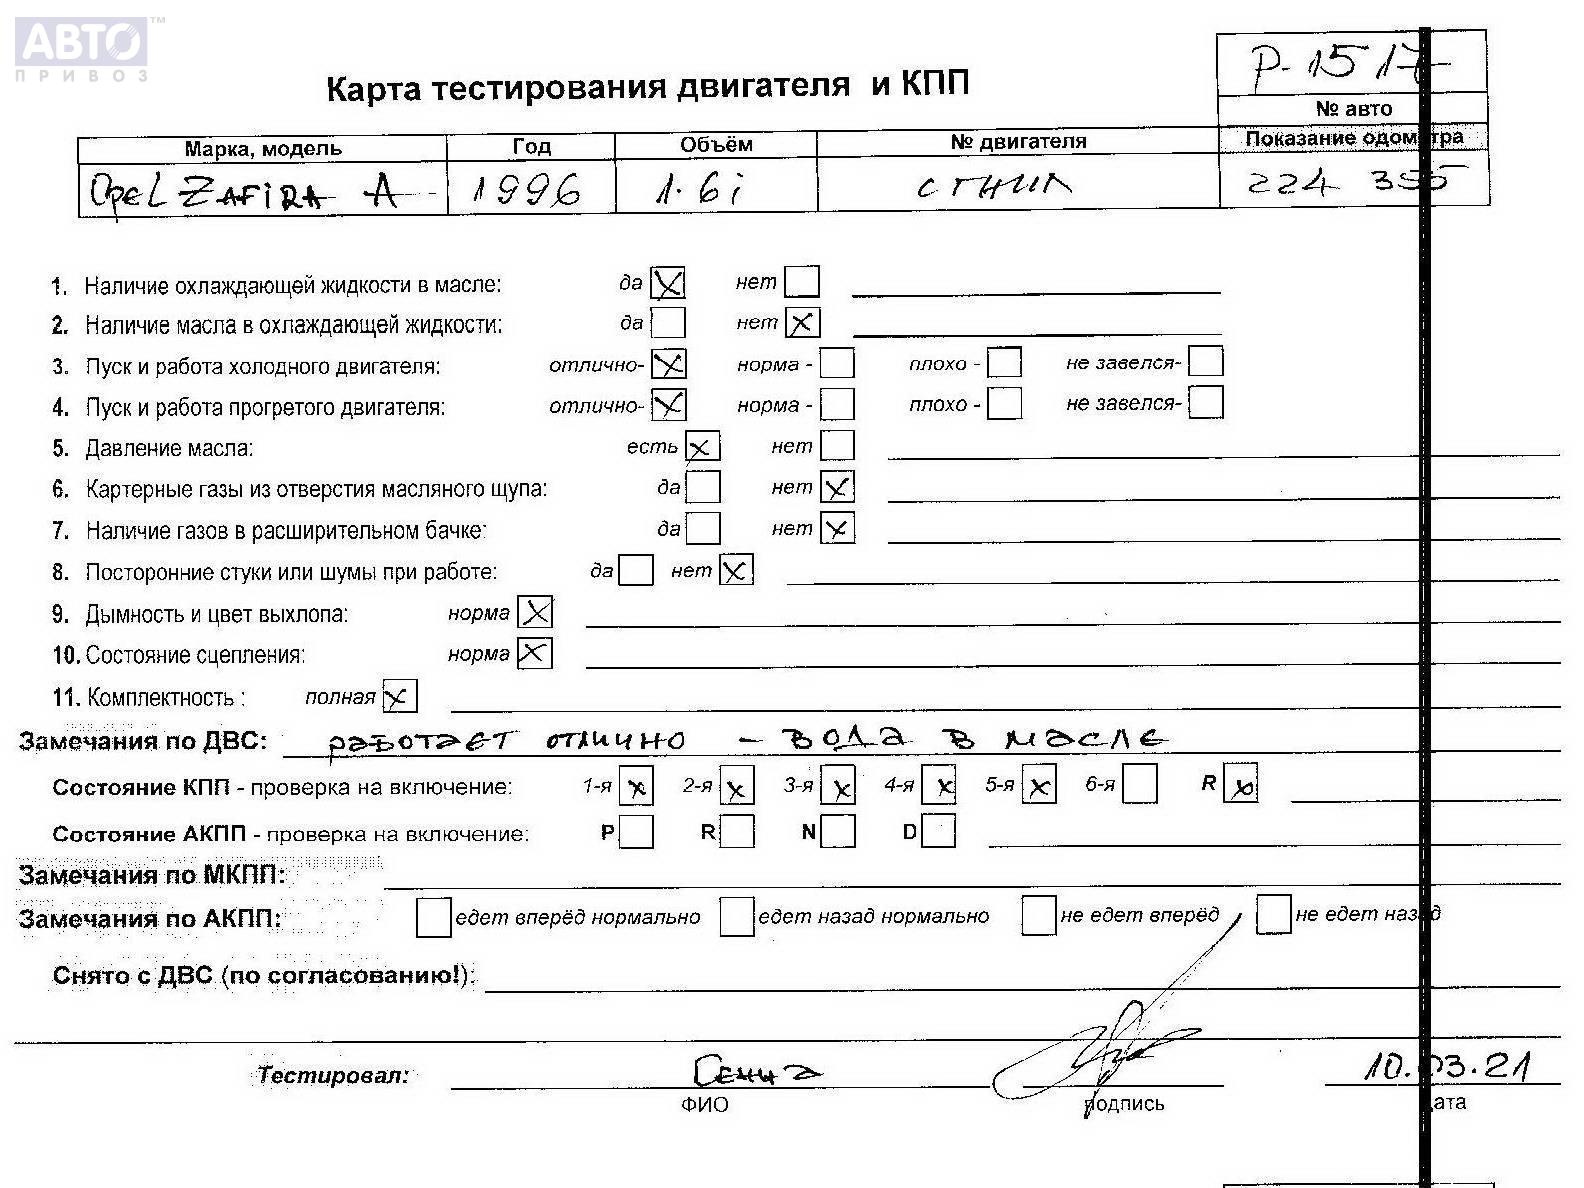 АВТО™
ПРИВОЗ
Карта тестирования двигателя и КПП
Р-1517
№ авто
Марка, модель Год Объём № двигателя Показание одометра
Opel ZAFIRA A - 1996 1.6i сгнил 224 355
1. Наличие охлаждающей жидкости в масле: да X нет
2. Наличие масла в охлаждающей жидкости: да нет X
3. Пуск и работа холодного двигателя: отлично- X норма - плохо - не завелся-
4. Пуск и работа прогретого двигателя: отлично- X норма - плохо - не завелся-
5. Давление масла: есть X нет
6. Картерные газы из отверстия масляного щупа: да нет X
7. Наличие газов в расширительном бачке: да нет X
8. Посторонние стуки или шумы при работе: да нет X
9. Дымность и цвет выхлопа: норма X
10. Состояние сцепления: норма X
11. Комплектность : полная X
Замечания по ДВС: работает отлично - вода в масле
Состояние КПП - проверка на включение: 1-я X 2-я X 3-я X 4-я X 5-я X 6-я R X
Состояние АКПП - проверка на включение: P R N D
Замечания по МКПП:
Замечания по АКПП: едет вперёд нормально едет назад нормально не едет вперёд не едет назад
Снято с ДВС (по согласованию!):
Тестировал: 10.03.21
ФИО подпись дата